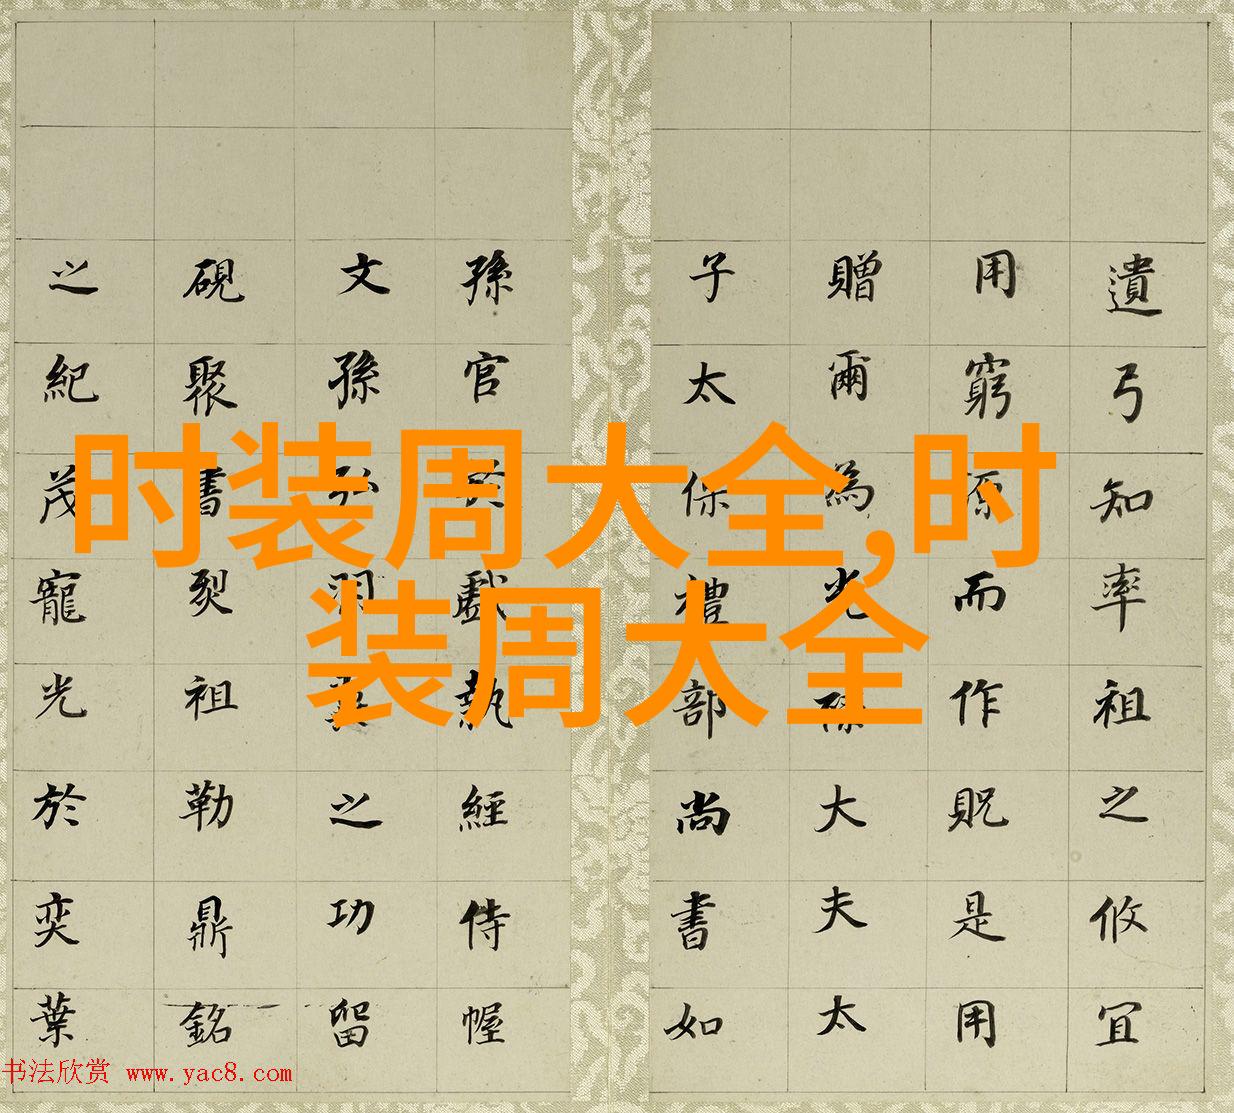 遺弓知率祖之攸宜
用窮原而作貺是用
贈爾為光祿大夫太
子太保禮部尚書如
孫官於戲執經侍幄
文孫弘羽翼之功留
硯聚書烈祖勒鼎銘
之紀茂寵光於奕葉
时装周大全,时
装周大全
书法欣赏 www.yac8.com